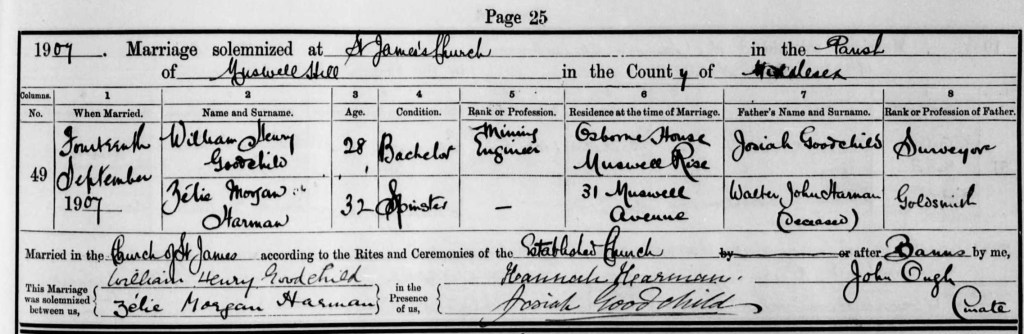 Page 25
1907. Marriage solemnized at St James's Church in the Parish
of Muswell Hill in the County of Middlesex
Columns. 1 2 3 4 5 6 7 8
No. When Married. Name and Surname. Age. Condition. Rank or Profession. Residence at the time of Marriage. Father's Name and Surname. Rank or Profession of Father.
49 Fourteenth September 1907
William Henry Goodchild 28 Bachelor Mining Engineer Osborne House Muswell Rise Josiah Goodchild Surveyor
Zélie Morgan Harman 32 Spinster — 31 Muswell Avenue Walter John Harman (deceased) Goldsmith
Married in the Church of St James according to the Rites and Ceremonies of the Established Church by or after Banns by me,
This Marriage was solemnized between us, William Henry Goodchild Zélie Morgan Harman in the Presence of us, Hannah Harman. Josiah Goodchild John Ough Curate